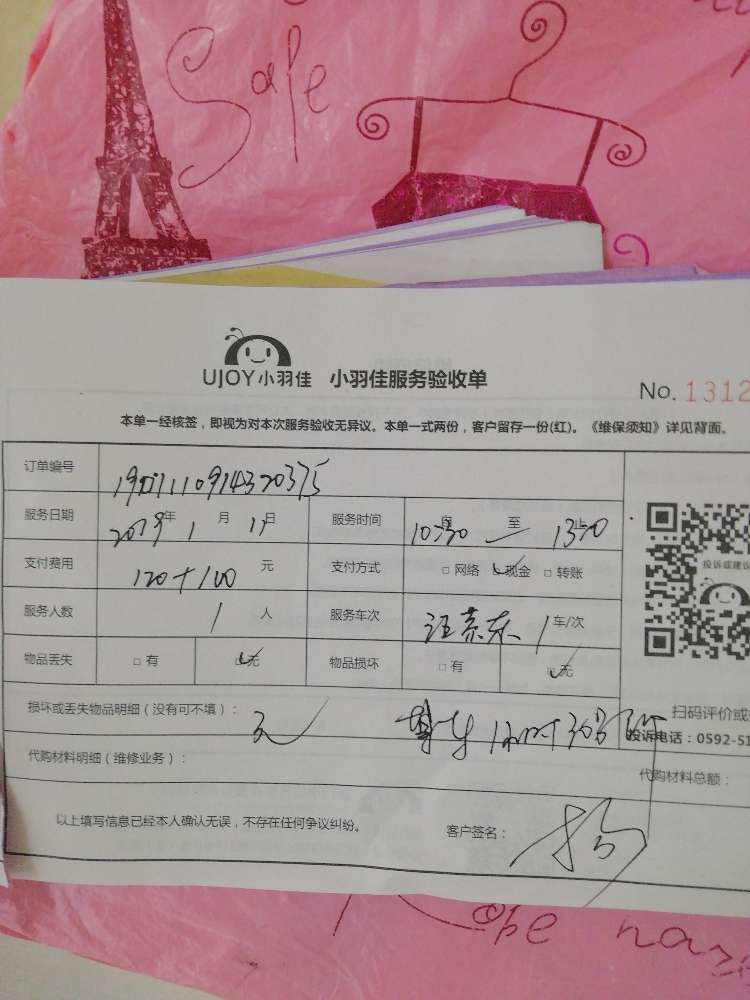 Safe
UJOY小羽佳 小羽佳服务验收单
No. 1312
本单一经核签，即视为对本次服务验收无异议。本单一式两份，客户留存一份(红)。《维保须知》详见背面。
订单编号
服务日期 2019年 1月 11日 服务时间 10:30 至 1330 止
支付费用 120+100 元 支付方式 □ 网络 □ 现金 □ 转账
服务人数 1 人 服务车次 1 车/次
物品丢失 □ 有 □ 无 物品损坏 □ 有 □ 无
投诉或建议
损坏或丢失物品明细（没有可不填）： 无
扫码评价或
投诉电话：0592-51
代购材料明细（维修业务）：
代购材料总额：
以上填写信息已经本人确认无误，不存在任何争议纠纷。
客户签名： 杨